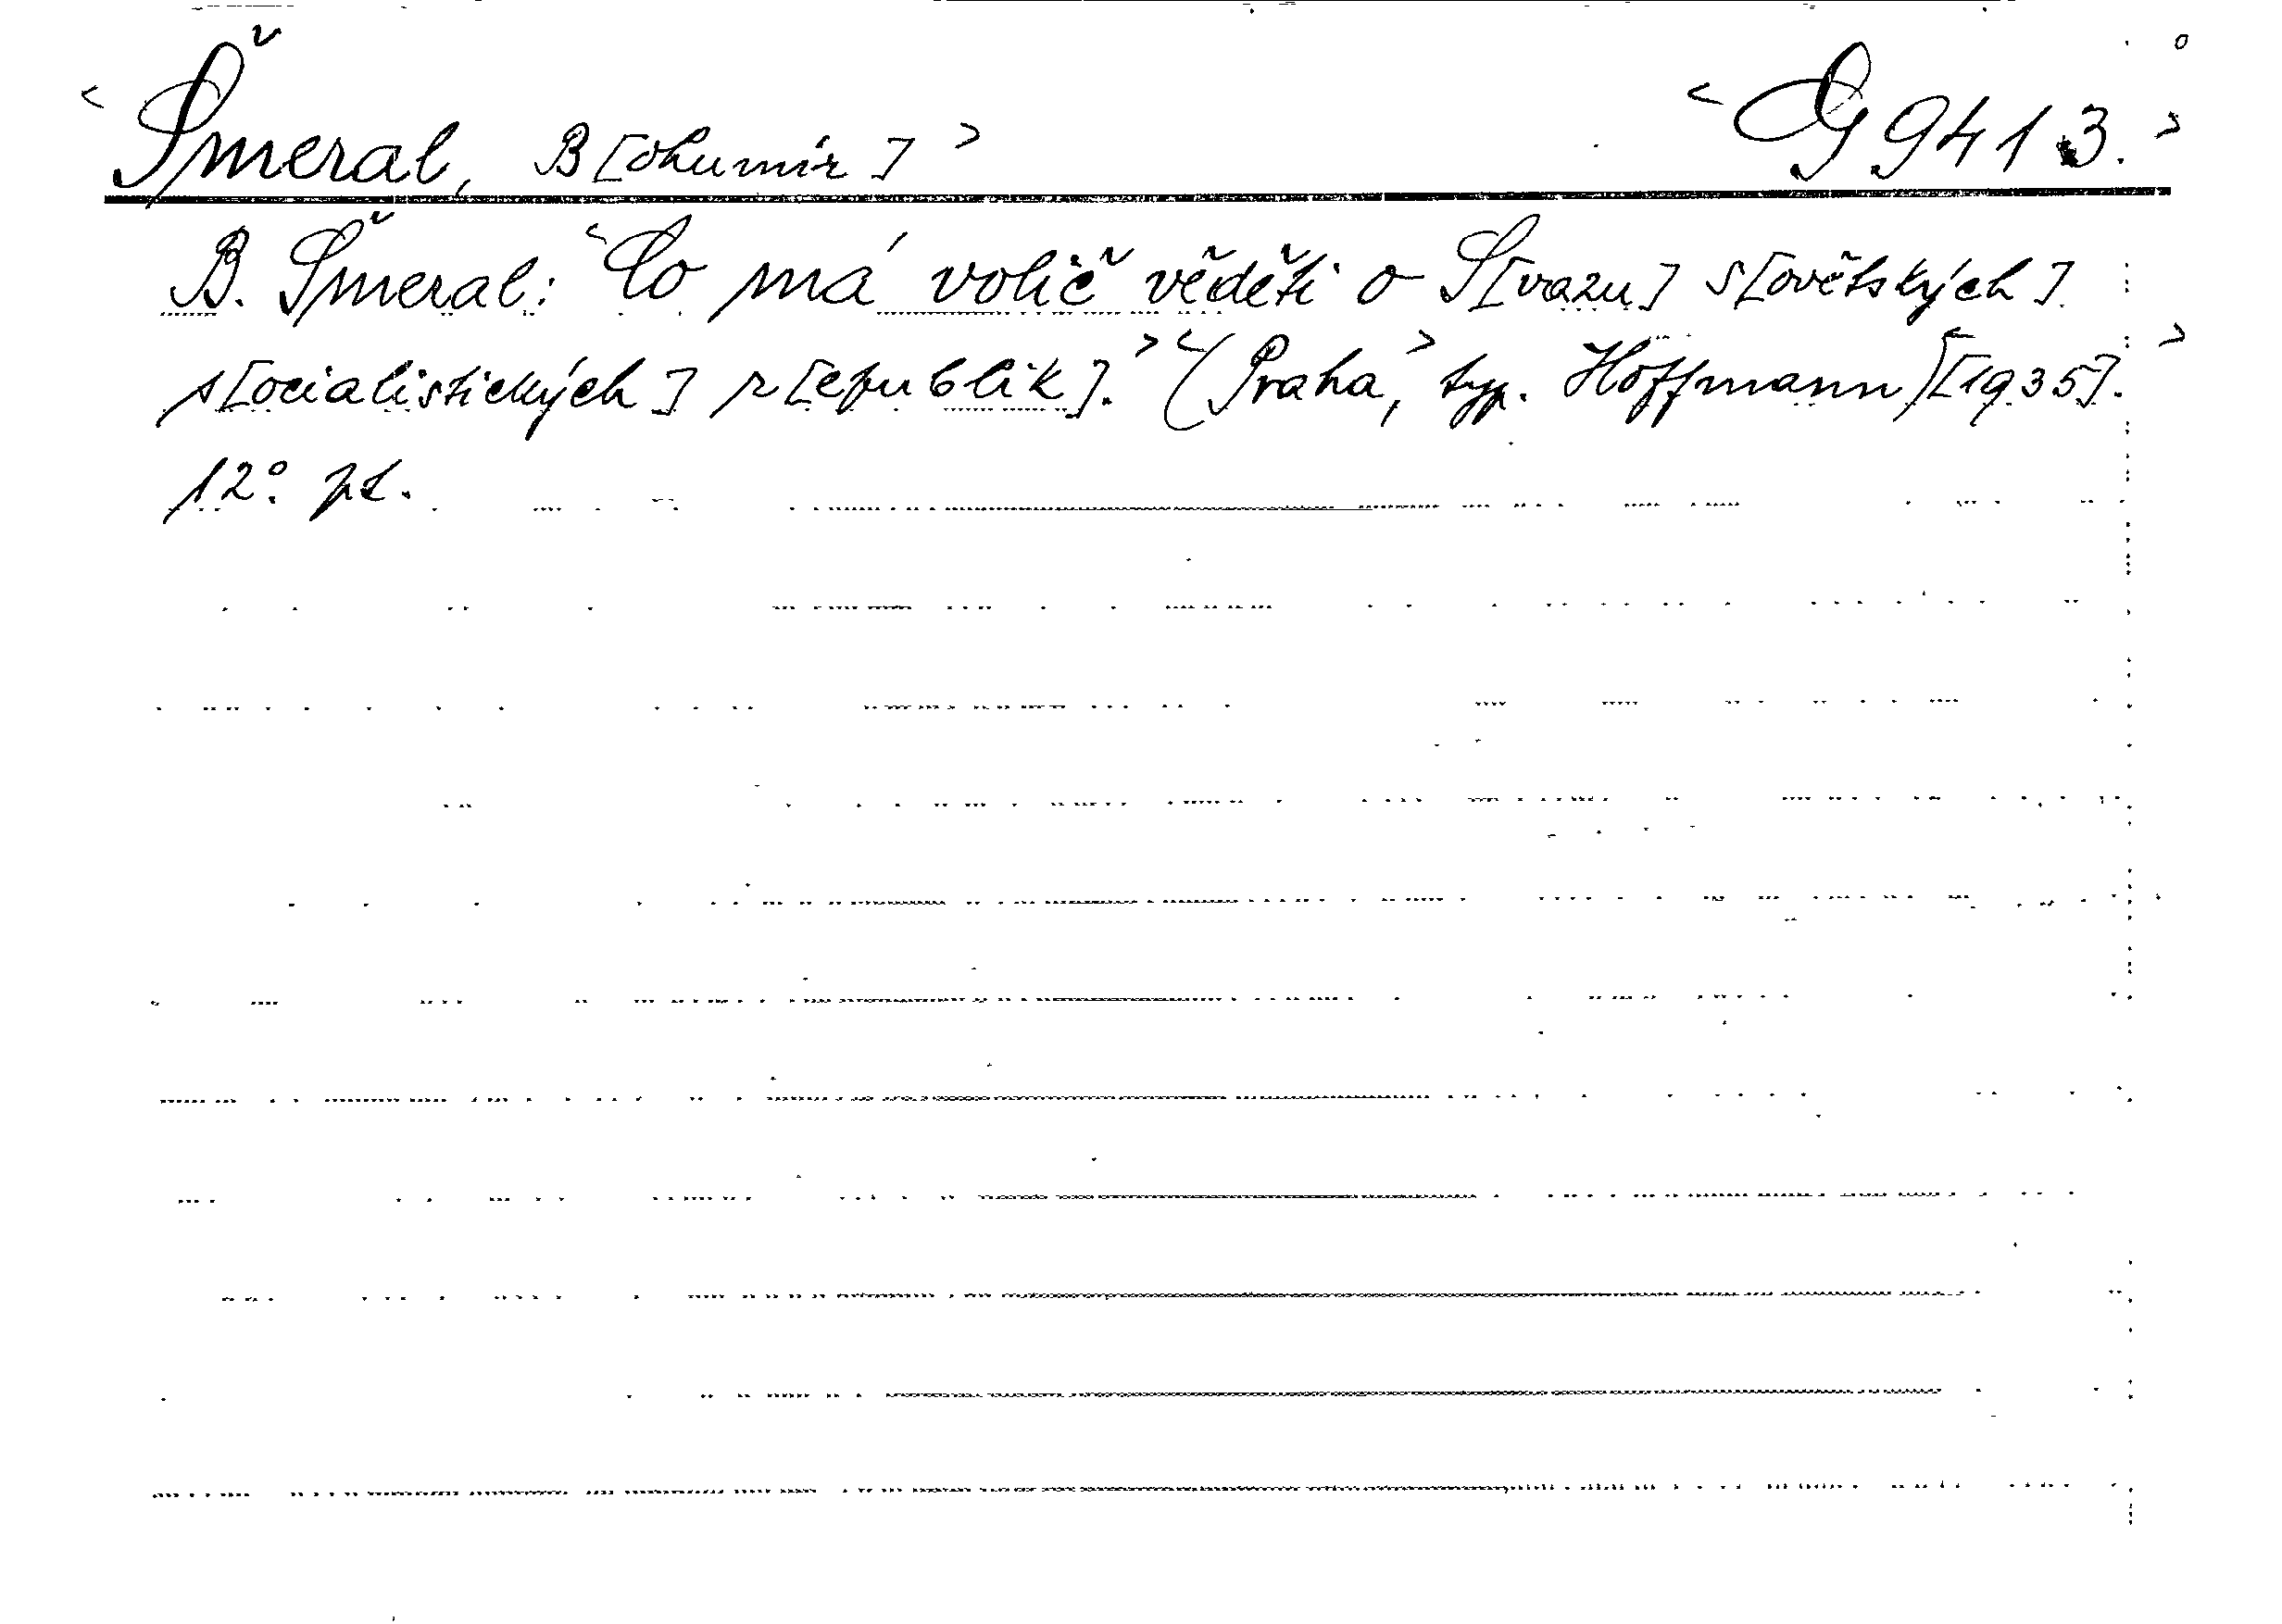 <Šmeral, B[ohumír]> <G 9413.>
B. Šmeral: <Co má volič věděti o S[vazu] s[ovětských]
s[ocialistických] r[epublik].> <(Praha,> typ. Hoffmann) <[1935].>
12°. pt.